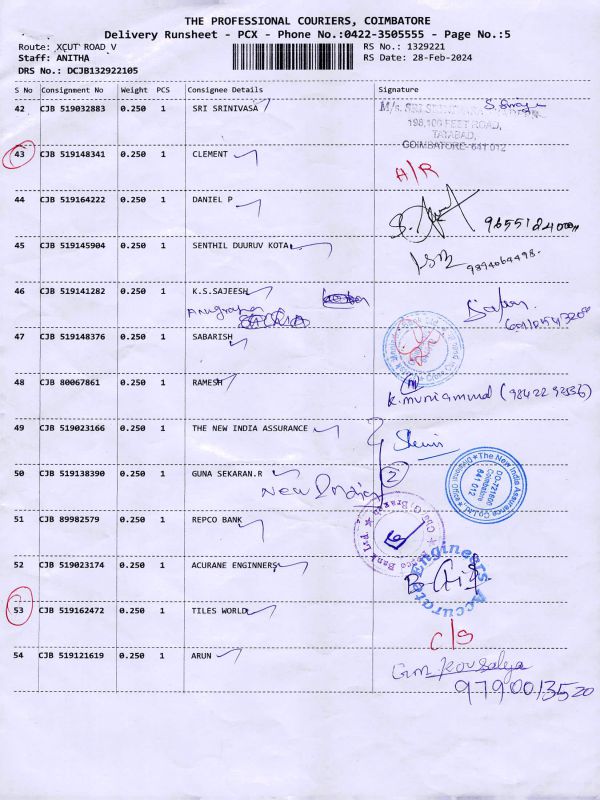 THE PROFESSIONAL COURIERS, COIMBATORE
Delivery Runsheet - PCX - Phone No.:0422-3505555 - Page No.:5
Route: XCUT ROAD V
RS No.: 1329221
Staff: ANITHA
RS Date: 28-Feb-2024
DRS No.: DCJB132922105
S No Consignment No Weight PCS Consignee Details Signature
42 CJB 519032883 0.250 1 SRI SRINIVASA
198,100 FEET ROAD,
TATABAD,
COIMBATORE- 641 012
43 CJB 519148341 0.250 1 CLEMENT
A/R
44 CJB 519164222 0.250 1 DANIEL P
45 CJB 519145904 0.250 1 SENTHIL DUURUV KOTA
9894064498.
46 CJB 519141282 0.250 1 K.S.SAJEESH
47 CJB 519148376 0.250 1 SABARISH
48 CJB 80067861 0.250 1 RAMESH
49 CJB 519023166 0.250 1 THE NEW INDIA ASSURANCE
50 CJB 519138390 0.250 1 GUNA SEKARAN.R
New India
2
The New India Assurance Co. Ltd.
Divisional Office
DO-721600
Coimbatore
641 012
51 CJB 89982579 0.250 1 REPCO BANK
52 CJB 519023174 0.250 1 ACURANE ENGINNERS
Accurate Engineers
53 CJB 519162472 0.250 1 TILES WORLD
C/S
54 CJB 519121619 0.250 1 ARUN
Gm. Kousalya
9790013520